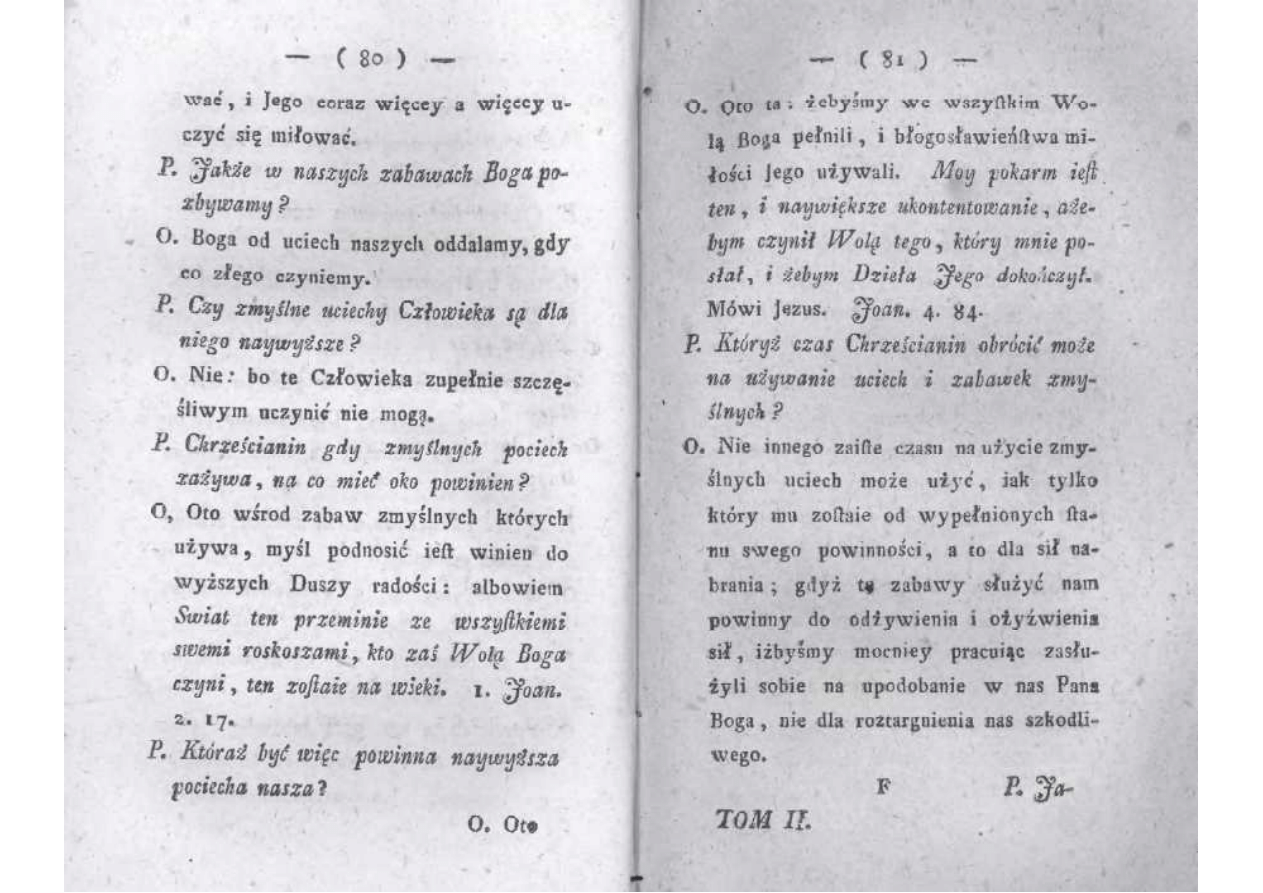 — ( 80 ) —
wać, i Jego coraz więcey a więcey u-
czyć się miłować.
P. Jakże w naszych zabawach Boga po-
zbywamy?
O. Boga od uciech naszych oddalamy, gdy
co złego czyniemy.
P. Czy zmyślne uciechy Człowieka są dla
niego naywyższe?
O. Nie: bo te Człowieka zupełnie szczę-
śliwym uczynić nie mogą.
P. Chrześcianin gdy zmyślnych pociech
zażywa, na co mieć oko powinien?
O, Oto wśrod zabaw zmyślnych których
używa, myśl podnosić ieſt winien do
wyższych Duszy radości: albowiem
Swiat ten przeminie ze wszyſtkiemi
swemi roskoszami, kto zaś Wolą Boga
czyni, ten zoſtaie na wieki. 1. Joan.
2. 17.
P. Któraż być więc powinna naywyższa
pociecha nasza?
O. Oto
— ( 81 ) —
O. Oto ta: żebyśmy we wszyſtkim Wo-
lą Boga pełnili, i błogosławieńſtwa mi-
łości Jego używali. Moy pokarm ieſt
ten, i naywiększe ukontentowanie, aże-
bym czynił Wolą tego, który mnie po-
słał, i żebym Dzieła Jego dokończył.
Mówi Jezus. Joan. 4. 84.
P. Któryż czas Chrześcianin obrócić może
na używanie uciech i zabawek zmy-
ślnych?
O. Nie innego zaiſte czasu na użycie zmy-
ślnych uciech może użyć, iak tylko
który mu zoſtaie od wypełnionych ſta-
nu swego powinności, a to dla sił na-
brania; gdyż tę zabawy służyć nam
powinny do odżywienia i ożyźwienia
sił, iżbyśmy mocniey pracuiąc zasłu-
żyli sobie na upodobanie w nas Pana
Boga, nie dla roztargnienia nas szkodli-
wego.
F P. Ja-
TOM II.